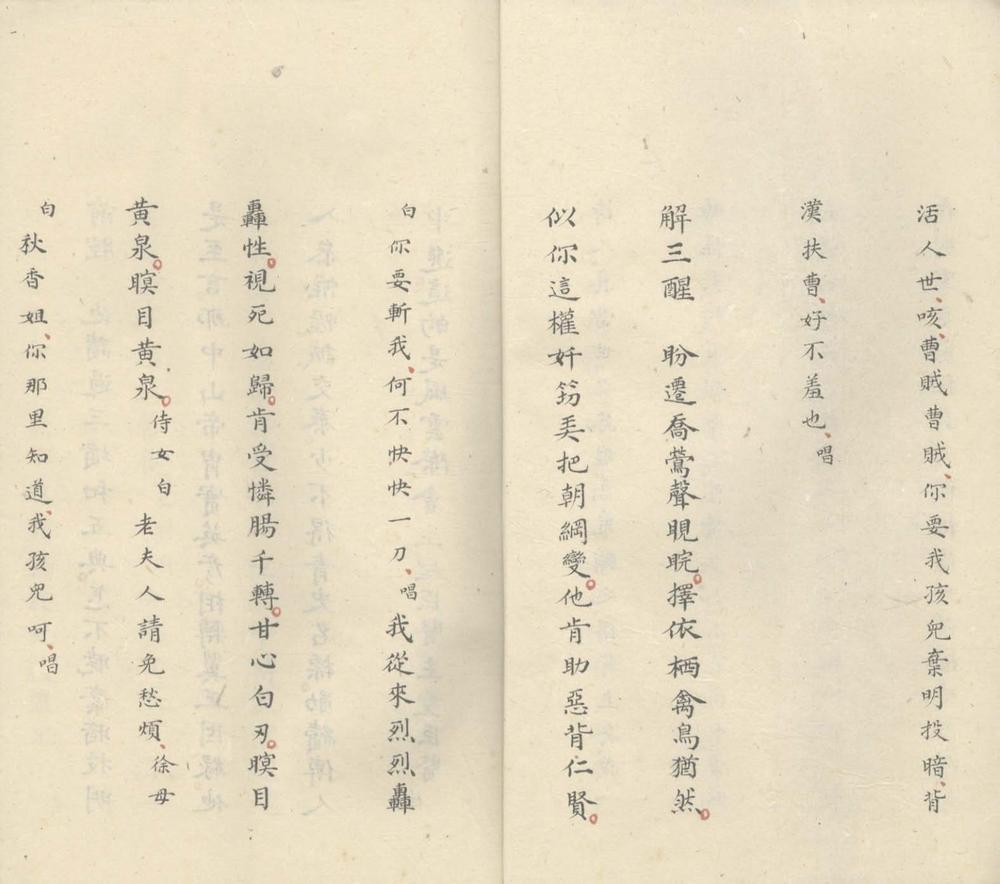 活人世、咳、曹賊曹賊、你要我孩兒棄明投暗、背
漢扶曹、好不羞也、唱
解三醒　盼遷喬鶯聲睍睆。擇依栖禽鳥猶然。
似你這權奸篡弄把朝綱變。他肯助惡背仁賢。
白　你要斬我、何不快快一刀、唱我從來烈烈轟
轟性。視死如歸。肯受憐腸千轉。甘心白刃。瞑目
黃泉。瞑目黃泉。侍女白　老夫人請免愁煩、徐母
白秋香姐、你那里知道、我孩兒呵、唱